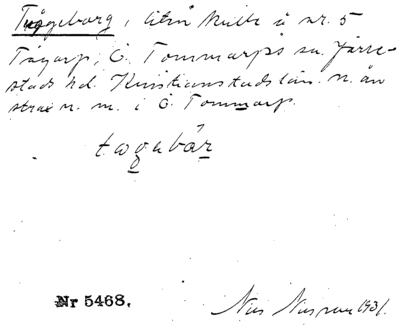 Tågeborg, liten kulle å nr. 5
Tågarp, Ö. Tommarps sn. Järre-
stads hd. Kristianstads län. n. ån
strax n. m. i Ö. Tommarp.
tagabår
Nr 5468.
Nils Nilsson 1931.